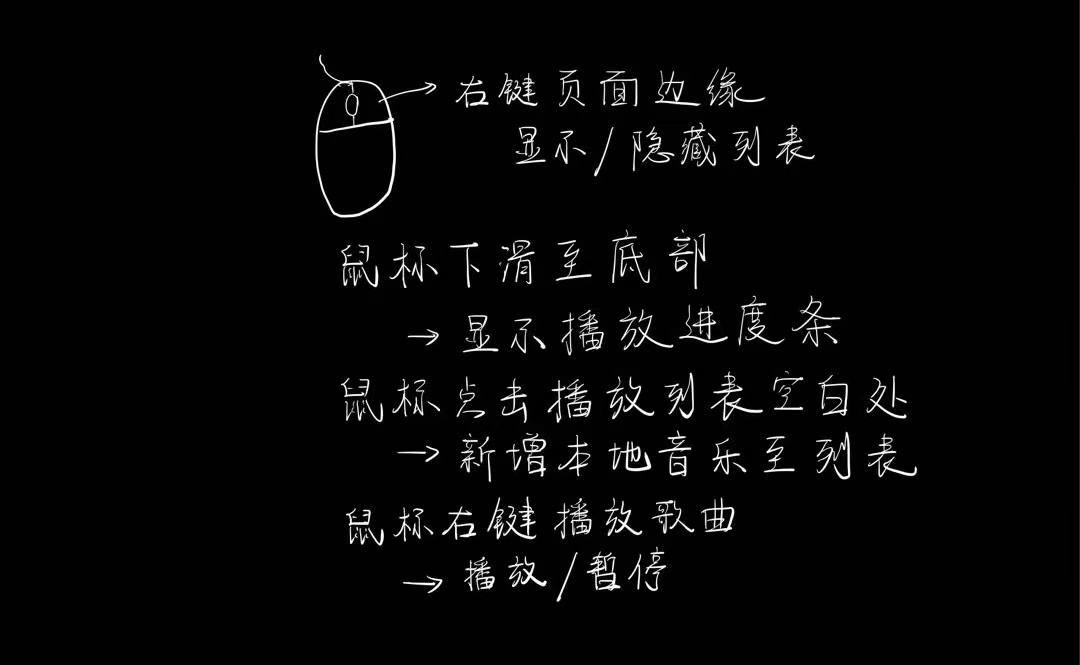 →右键页面边缘
显示/隐藏列表
鼠标下滑至底部
→显示播放进度条
鼠标点击播放列表空白处
→新增本地音乐至列表
鼠标右键播放歌曲
→播放/暂停